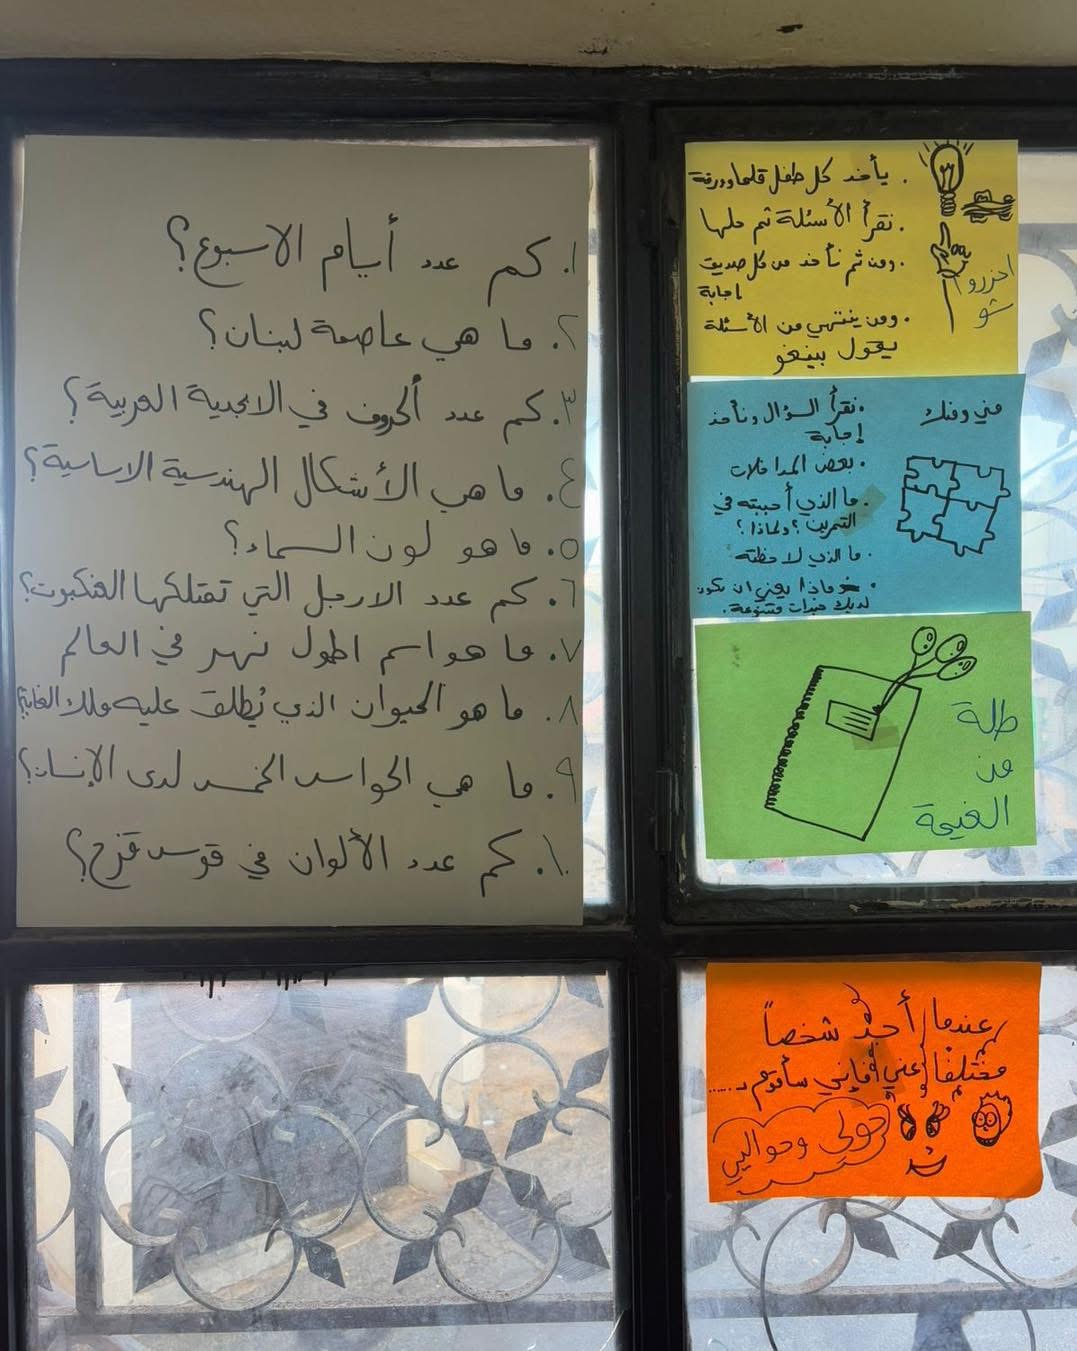 ١. كم عدد أيام الاسبوع؟
٢. ما هي عاصمة لبنان؟
٣. كم عدد ألحروف في الابجدية العربية؟
٤. ما هي الأشكال الهندسية الاساسية؟
٥. ما هو لون السماء؟
٦. كم عدد الارجل التي تمتلكها العنكبوت؟
٧. ما هو اسم اطول نهر في العالم
٨. ما هو الحيوان الذي يُطلق عليه ملك الغابة؟
٩. ما هي الحواس الخمس لدى الإنسان؟
١٠. كم عدد الألوان في قوس قزح؟
. يأخد كل طفل قلما وورقة
. نقرأ الأسئلة ثم حلها
. ومن ثم نأخد من كل صديق
اجابة
. ومن ينتهي من الأسئلة
يقول بينغو
احزروا
شو
مني ومنك
. نقرأ السؤال ونأخد
إجابة
. بعض المداخلات
. ما الذي أحببته في
التمرين؟ ولماذا؟
. ما الذي لاحظته
. ماذا يعني ان تكون
لديك خبرات متنوعة.
طلة
من
الغيمة
عندما أجد شخصاً
مختلفاً عني فإني سأقوم بـ......
حولي وحواليي